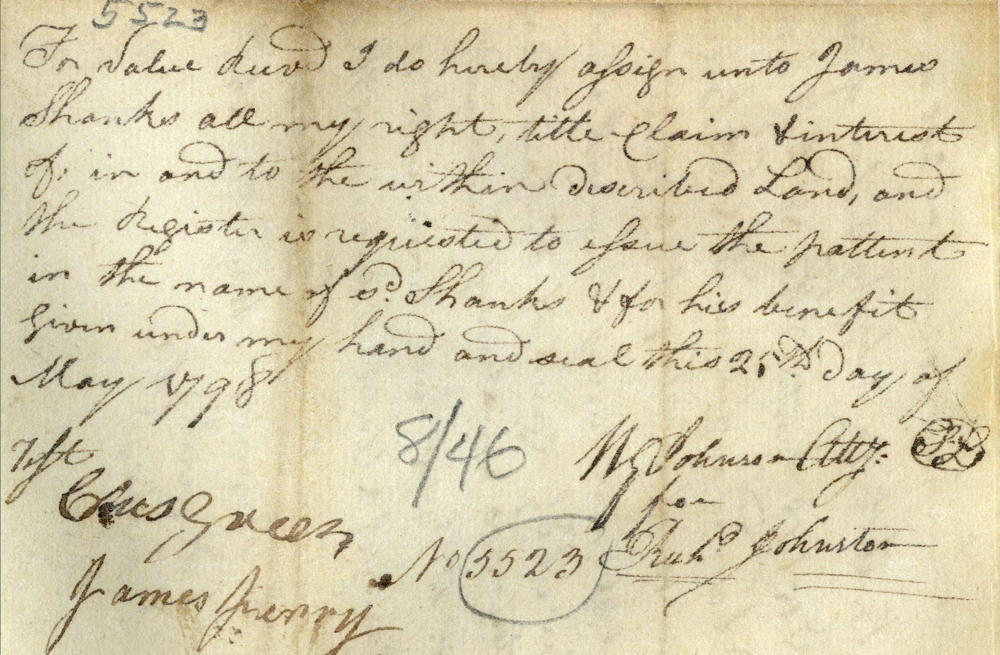 5523
For value Recvd I do hereby assign unto James
Shanks all my right, title Claim & interest
of, in and to the within described Land, and
the Register is requested to essue the pattent
in the name of sd. Shanks & for his benefit
Given under my hand and seal this 25th day of
May 1798
8/46
Test
Johnson Atty:
for
No 5523 Richd Johnston
James Henry